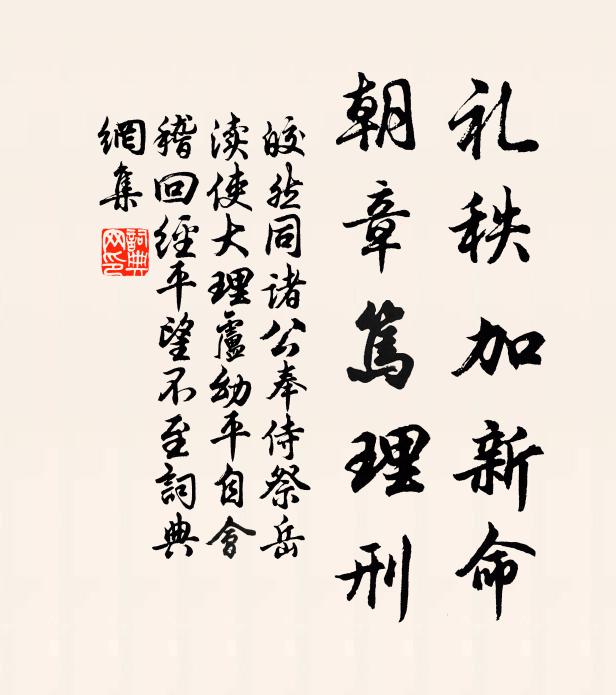 礼秩加新命
朝章篤理刑
皎然同诸公奉侍祭岳
渎使大理盧幼平自會
稽回經平望不至詞典
網集
詞典網印